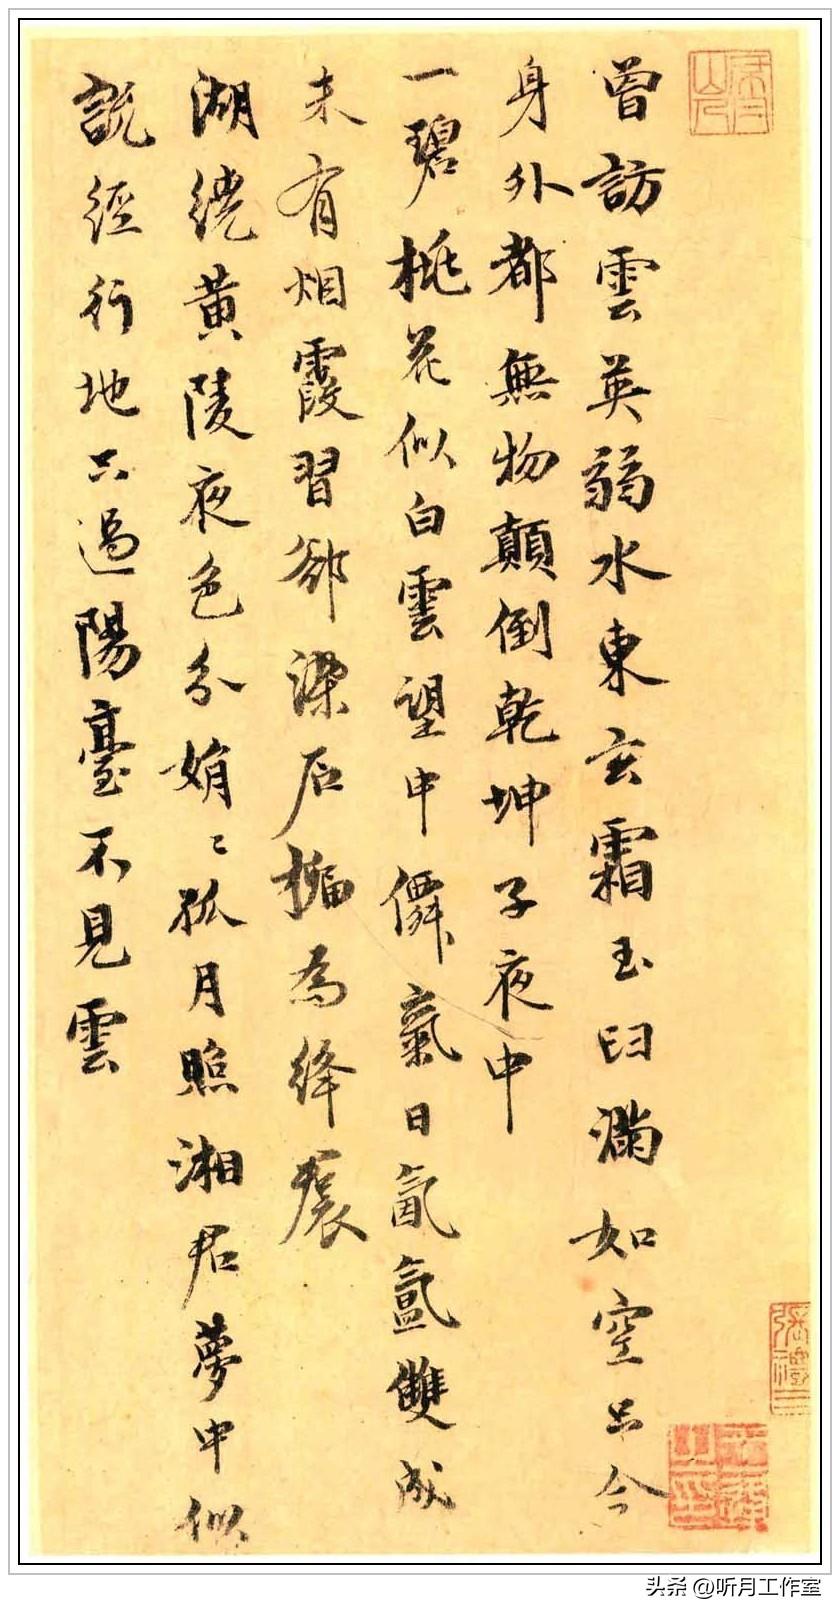 曾訪雲英弱水東玄霜玉臼滿如空只今
身外都無物顛倒乾坤子夜中
一碧桃花似白雲望中僊氣日氤氳雙成
未有烟霞習卻染石榴為絳裠
湖繞黃陵夜色分娟〻孤月照湘君夢中似
說經行地只過陽臺不見雲
头条 @听月工作室